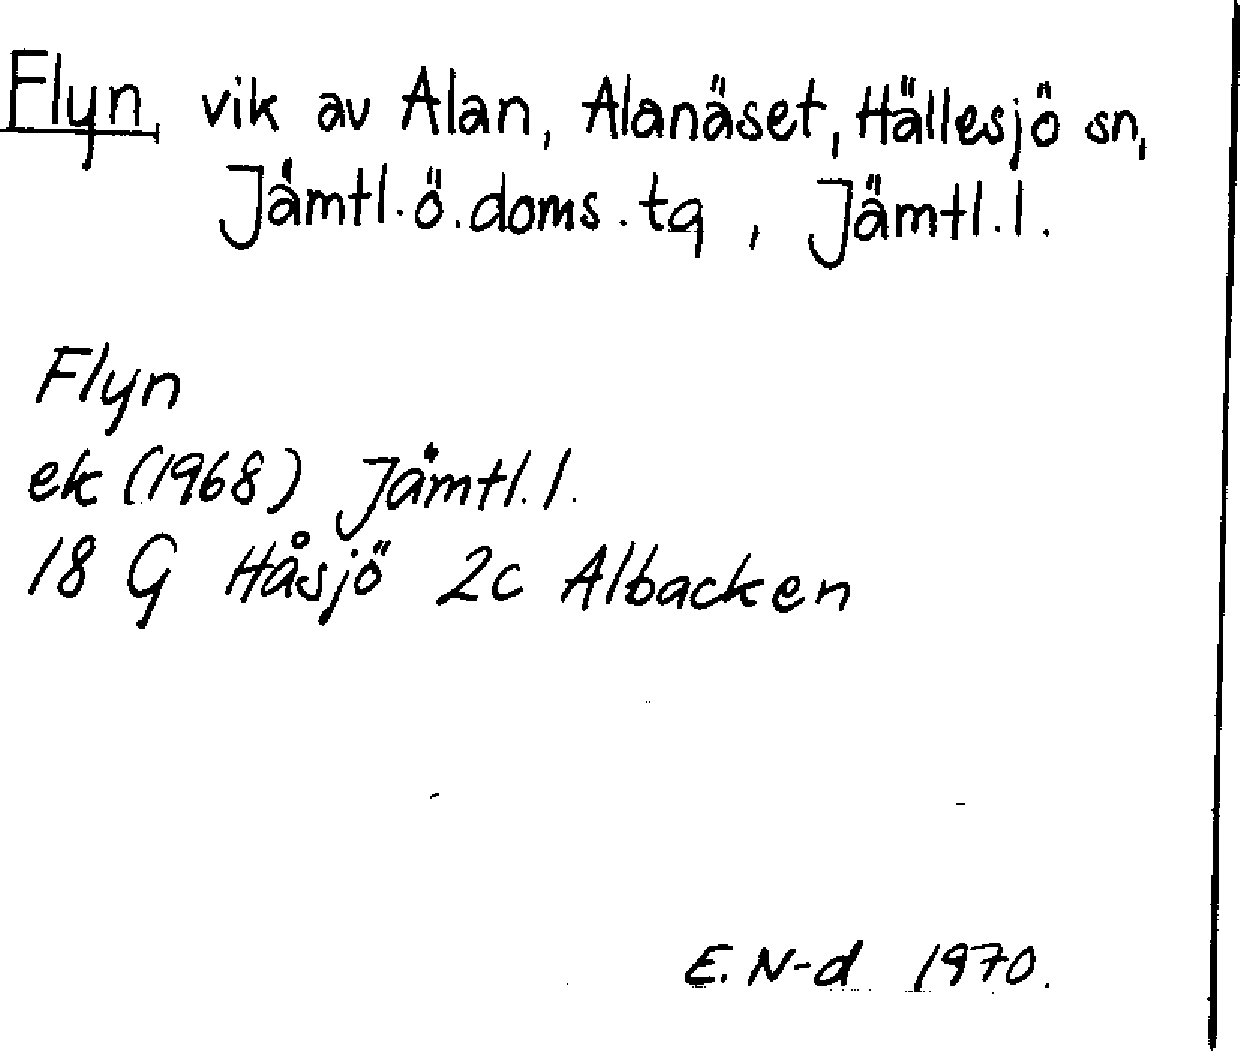 Flyn, vik av Alan, Alanäset, Hällesjö sn,
Jämtl. ö. doms. tg, Jämtl. l.
Flyn
ek (1968) Jämtl. l.
18 G Håsjö 2c Albacken
E. N-d 1970.